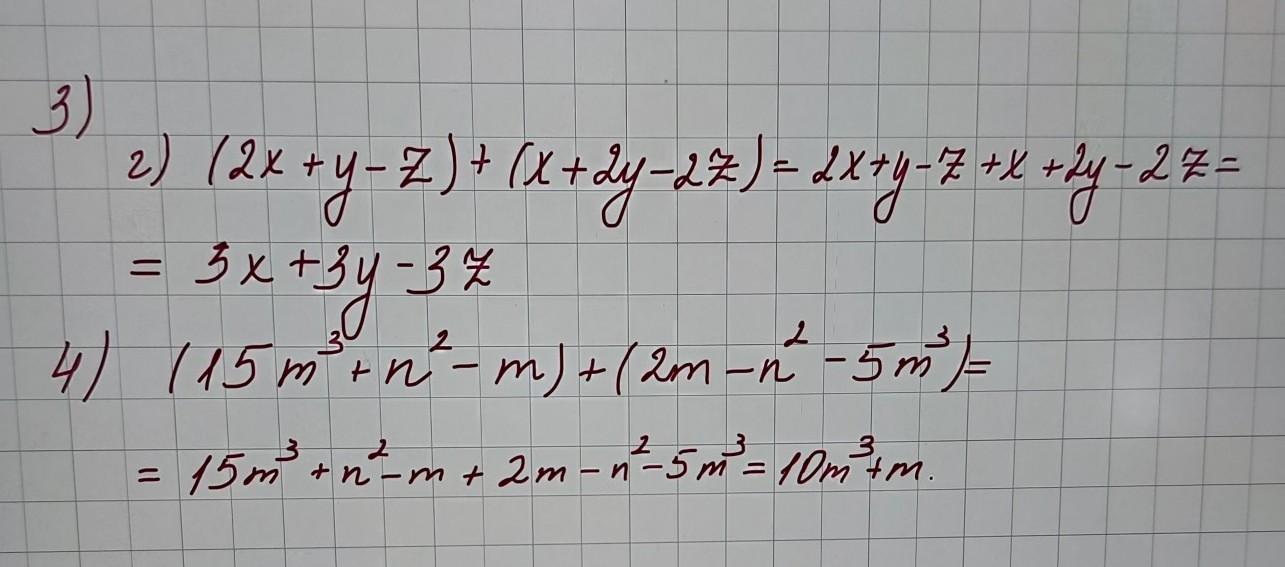 3)
г) (2x + y - z) + (x + 2y - 2z) = 2x + y - z + x + 2y - 2z =
= 3x + 3y - 3z
4) (15m³ + n² - m) + (2m - n² - 5m³) =
= 15m³ + n² - m + 2m - n² - 5m³ = 10m³ + m.